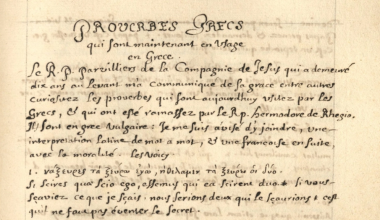 PROUERBES GRECS
qui sont maintenant en Vsage
en Grece
Le R. P. Parvilliers de la Compagnie de Jesus qui a demeuré
dix ans au levant ma Communiqué de sa grace entre autres
curiositez les proverbes qui sont aujourdhuy vsitez par les
Grecs, et qui ont esté ramassez par le R.p. hermodore de Rhegio,
Ils sont en grec Vulgaire: Je me suis avisé dy joindre, vne
interpretation latine de mot a mot, et vne francoise en suite,
avec la moralité. les Voicy
1. τὰ ξεύρω ἐγώ, τὰ οἱ δύο.
Si scires quae scio ego, essemus qui ea scirent duo. si vous
scaviez ce que je scais, nous serions deux qui le scaurions. c'est
quil ne faut pas éventer le secret.